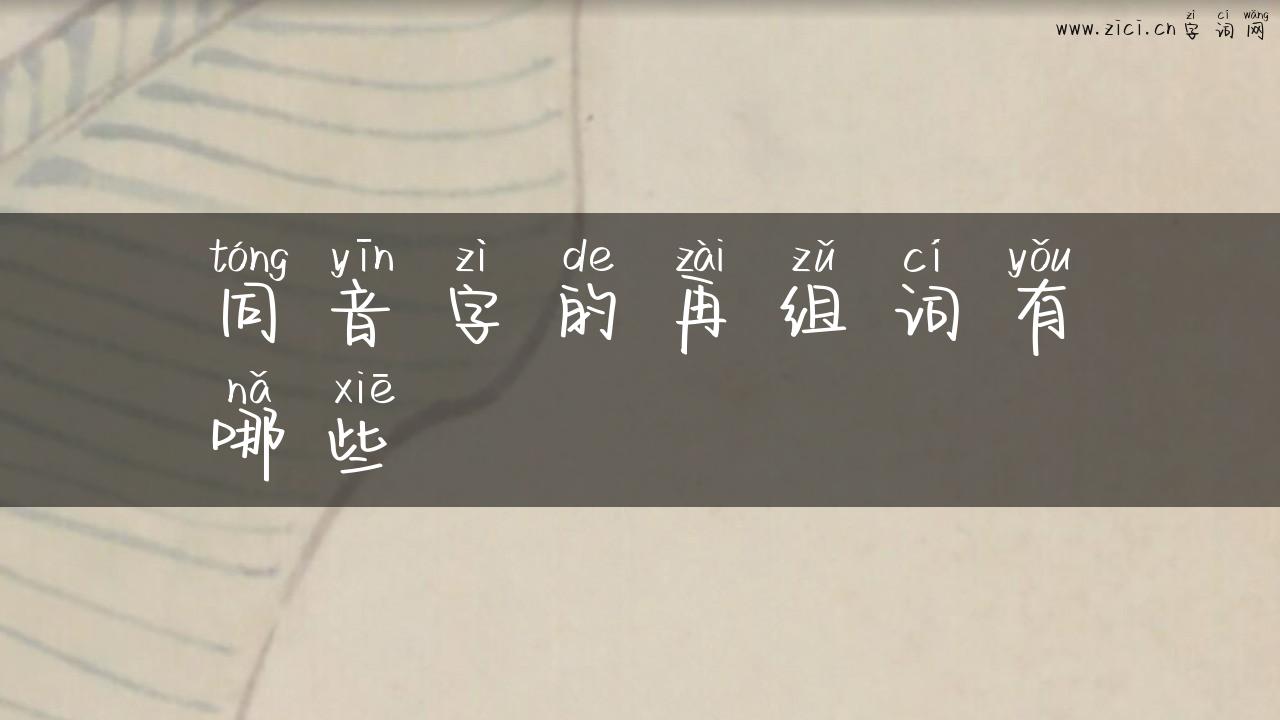 zì cí wǎng
www.zici.cn 字词网
tóng yīn zì de zài zǔ cí yǒu
同音字的再组词有
nǎ xiē
哪些